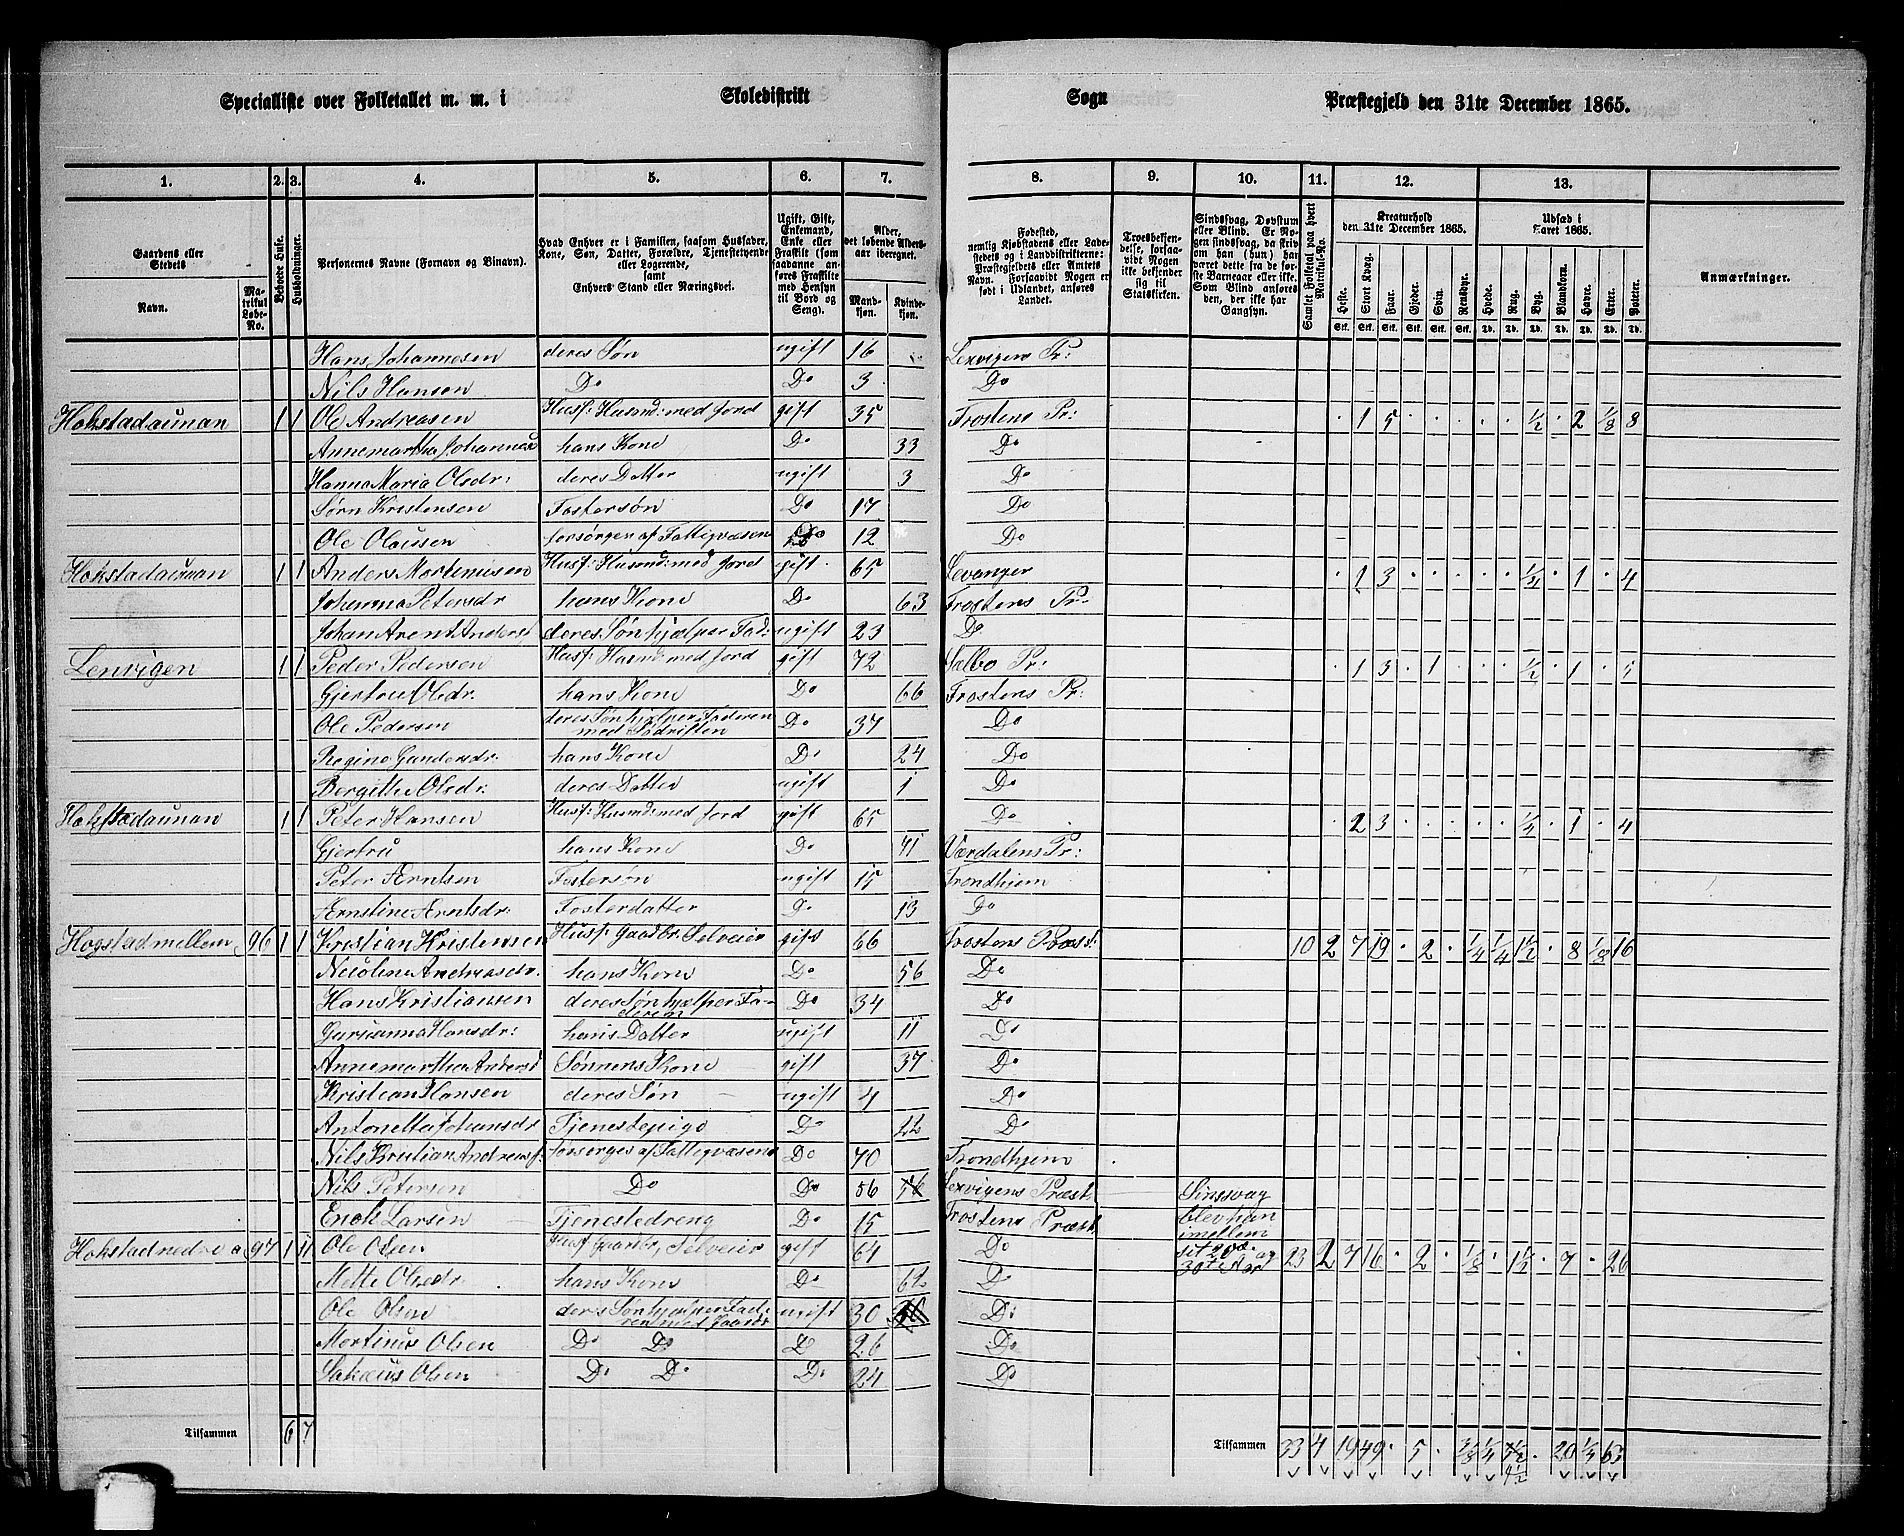 Specialliste over Folketallet m. m. i Skoledistrikt Sogn Præstegjeld den 31te December 1865.
1. 2. 3. 4. 5. 6. 7. 8. 9. 10. 11. 12. 13.
Gaardens eller Stedets Navn. Matrikul Løbe-No. Beboede Huse. Husholdninger. Personernes Navne (Fornavn og Binavn). Hvad Enhver er i Familien, saasom Husfader, Kone, Søn, Datter, Forældre, Tjenestetyende eller Logerende, samt Enhvers Stand eller Næringsvei. Ugift, Gift, Enkemand, Enke eller Fraskilt (som saadanne anføres Fraskilte med Hensyn til Bord og Seng). Alder, det løbende Alders-aar iberegnet. Mandkjøn. Kvindekjøn.
Fødested, nemlig Kjøbstadens eller Ladestedets og i Landdistrikterne: Præstegjeldets eller Amtets Navn. Forsaavidt Nogen er født i Udlandet, anføres Landet. Troesbekjendelse, forsaavidt Nogen ikke bekjender sig til Statskirken. Sindssvag, Døvstum eller Blind. Er Nogen sindssvag, da skriv om han (hun) har været dette fra de første Barneaar eller ikke. Som Blind anføres den, der ikke har Gangsyn. Samlet Folketal paa hvert Matrikul-No. Kreaturhold den 31te December 1865. Udsæd i Aaret 1865. Anmærkninger.
Heste. Stort Kvæg. Faar. Gjeder. Svin. Rensdyr. Hvede. Rug. Byg. Blandkorn. Havre. Erter. Poteter.
Hans Johannesen deres Søn ugift 16 Lexvigens Pr:
Nils Hansen Do Do 3 Do
Hokstadaunan 1 1 Ole Andreasen Husf: Husmd: med Jord gift 35 Frostens Pr: 1 5 ½ 2 ⅛ 8
Annemartha Johannesd hans Kone Do 33 Do
Hanna Maria Olsdr: deres Datter ugift 3 Do
Sørn Kristensen Fostersøn Do 17 Do
Ole Olausen forsørges af Fattigvæsen Do 12 Do
Hokstadaunan 1 1 Anders Mortensen Husf: Husmd: med Jord gift 65 Levanger 1 3 1 4
Johanna Petersdr hans Kone Do 63 Frostens Pr:
Johan Arent Anders deres Søn hjælper Fad: ugift 23 Do
Lenvigen 1 1 Peder Pedersen Husf: Husmd: med Jord gift 72 Sælbo Pr: 1 3 1 ½ 1 5
Gjertru Olsdr. hans Kone Do 66 Frostens Pr:
Ole Pedersen deres Søn hjælper Faderen Do 37 Do
Regine Gundersdr. hans Kone Do 24 Do
Bergitte Olsdr: deres Datter ugift 1 Do
Hokstadaunan 1 1 Peter Hansen Husf: Husmd: med Jord gift 65 Do 2 3 ¼ 1 4
Gjertru hans Kone Do 71 Værdalens Pr:
Peter Arntsen Fostersøn ugift 15 Trondhjem
Arnstine Arntsdr: Fosterdatter Do 13 Do
Hogstadmellem 96 1 1 Kristian Kristensen Husf: Gaardbr Selveier gift 66 Frostens Præst: 10 2 7 19 2 ¼ ¼ 1½ 8 ⅛ 16
Nicoline Andreasdr. hans Kone Do 56 Do
Hans Kristiansen deres Søn hjælper Fa-
deren Do 34 Do
Gurianna Hansdr: hans Datter ugift 11 Do
Annemartha Andersd Sønnens Kone gift 37 Do
Kristian Hansen deres Søn ugift 4 Do
Antonetta Johansdr Tjenestepige Do 22 Do
Nils Kristian Andreas. forsørges af Fattigvæsene Do 70 Trondhjem
Nils Petersen Do Do 56 Lexvigens Præst. Sinssvag
Enok Larsen Tjenestedreng Do 15 Frostens Præst. blev han
imellem
Hokstadnedre a 97 1 11 Ole Olsen Husf Gaardbr, Selveier gift 64 Do sit 20de og 23 2 7 16 2 ⅛ 1½ 7 26
30te Aar
Mette Olsdr. hans Kone Do 62 Do
Ole Olsen deres Søn hjælper Fade-
ren med Gaardsbr ugift 30 Do
Mortinus Olsen Do Do Do 26 Do
Sakæus Olsen Do Do Do 24 Do
Tilsammen 6 7 Tilsammen 33 4 19 49 5 ⅜ ¼ 20 ¼ 63